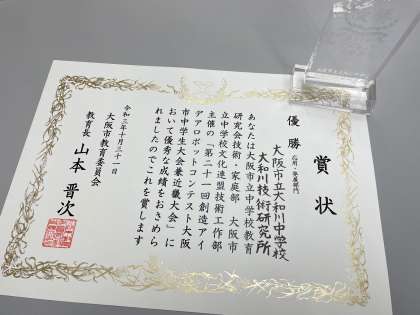 賞状
優勝
大阪市立大和川中学校
大和川技術研究所
あなたは大阪市立中学校教育
研究会技術・家庭部 大阪市
立中学校文化連盟技術工作部
主催の「第二十一回創造アイ
デアロボットコンテスト大阪
市中学生大会兼近畿大会」に
おいて優秀な成績をおさめら
れましたのでこれを賞します
令和三年十月三十一日
大阪市教育委員会
教育長 山本晋次